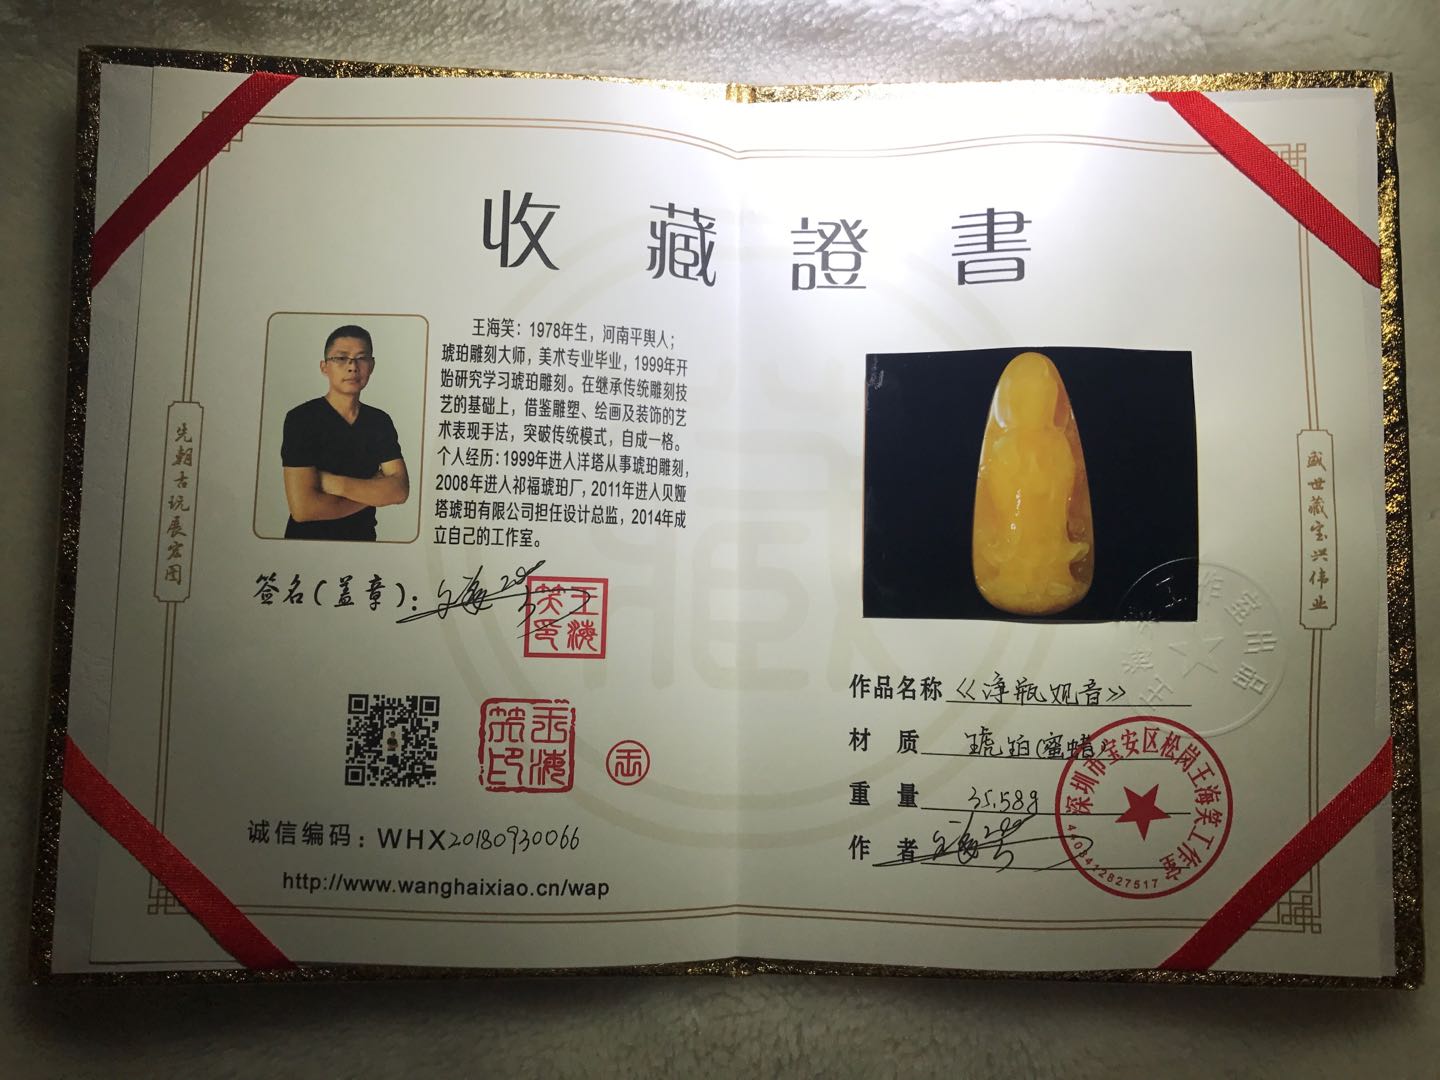 收藏證書
王海笑：1978年生，河南平舆人；
琥珀雕刻大师，美术专业毕业，1999年开
始研究学习琥珀雕刻。在继承传统雕刻技
艺的基础上，借鉴雕塑、绘画及装饰的艺
术表现手法，突破传统模式，自成一格。
个人经历：1999年进入洋塔从事琥珀雕刻，
2008年进入祁福琥珀厂，2011年进入贝娅
塔琥珀有限公司担任设计总监，2014年成
立自己的工作室。
先朝古玩展宏图
签名(盖章)：
王海笑印
王海笑印
诚信编码：WHX20180930066
http://www.wanghaixiao.cn/wap
盛世藏宝兴伟业
作品名称《净瓶观音》
材质 琥珀(蜜蜡)
重量 35.58g
作者
深圳市宝安区松岗王海笑工作室
4403412827517